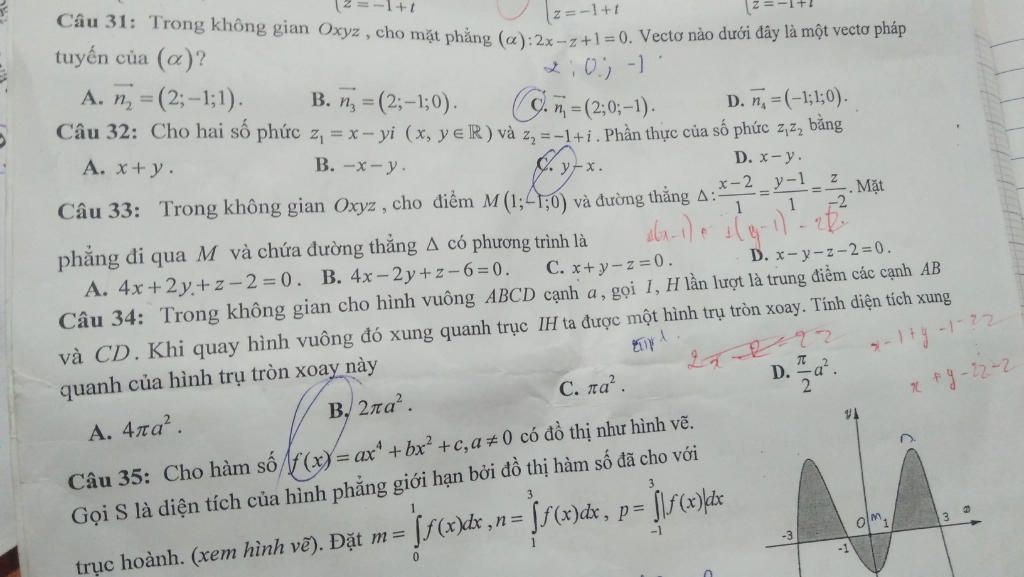 z = −1+t z = −1+t z = −1+t
Câu 31: Trong không gian Oxyz, cho mặt phẳng (α): 2x − z + 1 = 0. Vectơ nào dưới đây là một vectơ pháp
tuyến của (α)?
2; 0; −1
A. n₂ = (2; −1; 1). B. n₃ = (2; −1; 0). C. n₁ = (2; 0; −1). D. n₄ = (−1; 1; 0).
Câu 32: Cho hai số phức z₁ = x − yi (x, y ∈ ℝ) và z₂ = −1 + i. Phần thực của số phức z₁z₂ bằng
A. x + y. B. −x − y. C. y − x. D. x − y.
Câu 33: Trong không gian Oxyz, cho điểm M(1; −1; 0) và đường thẳng Δ: (x−2)/1 = (y−1)/1 = z/−2. Mặt
phẳng đi qua M và chứa đường thẳng Δ có phương trình là
A. 4x + 2y + z − 2 = 0. B. 4x − 2y + z − 6 = 0. C. x + y − z = 0. D. x − y − z − 2 = 0.
Câu 34: Trong không gian cho hình vuông ABCD cạnh a, gọi I, H lần lượt là trung điểm các cạnh AB
và CD. Khi quay hình vuông đó xung quanh trục IH ta được một hình trụ tròn xoay. Tính diện tích xung
quanh của hình trụ tròn xoay này
x − 1 + y − 1 − 2z
x + y − 2z − 2
A. 4πa². B. 2πa². C. πa². D. π/2 a².
Câu 35: Cho hàm số f(x) = ax⁴ + bx² + c, a ≠ 0 có đồ thị như hình vẽ.
Gọi S là diện tích của hình phẳng giới hạn bởi đồ thị hàm số đã cho với
trục hoành. (xem hình vẽ). Đặt m = ∫₀¹ f(x)dx, n = ∫₁³ f(x)dx, p = ∫₋₁³ |f(x)|dx
y
n
-3 -1 O m 1 3 x